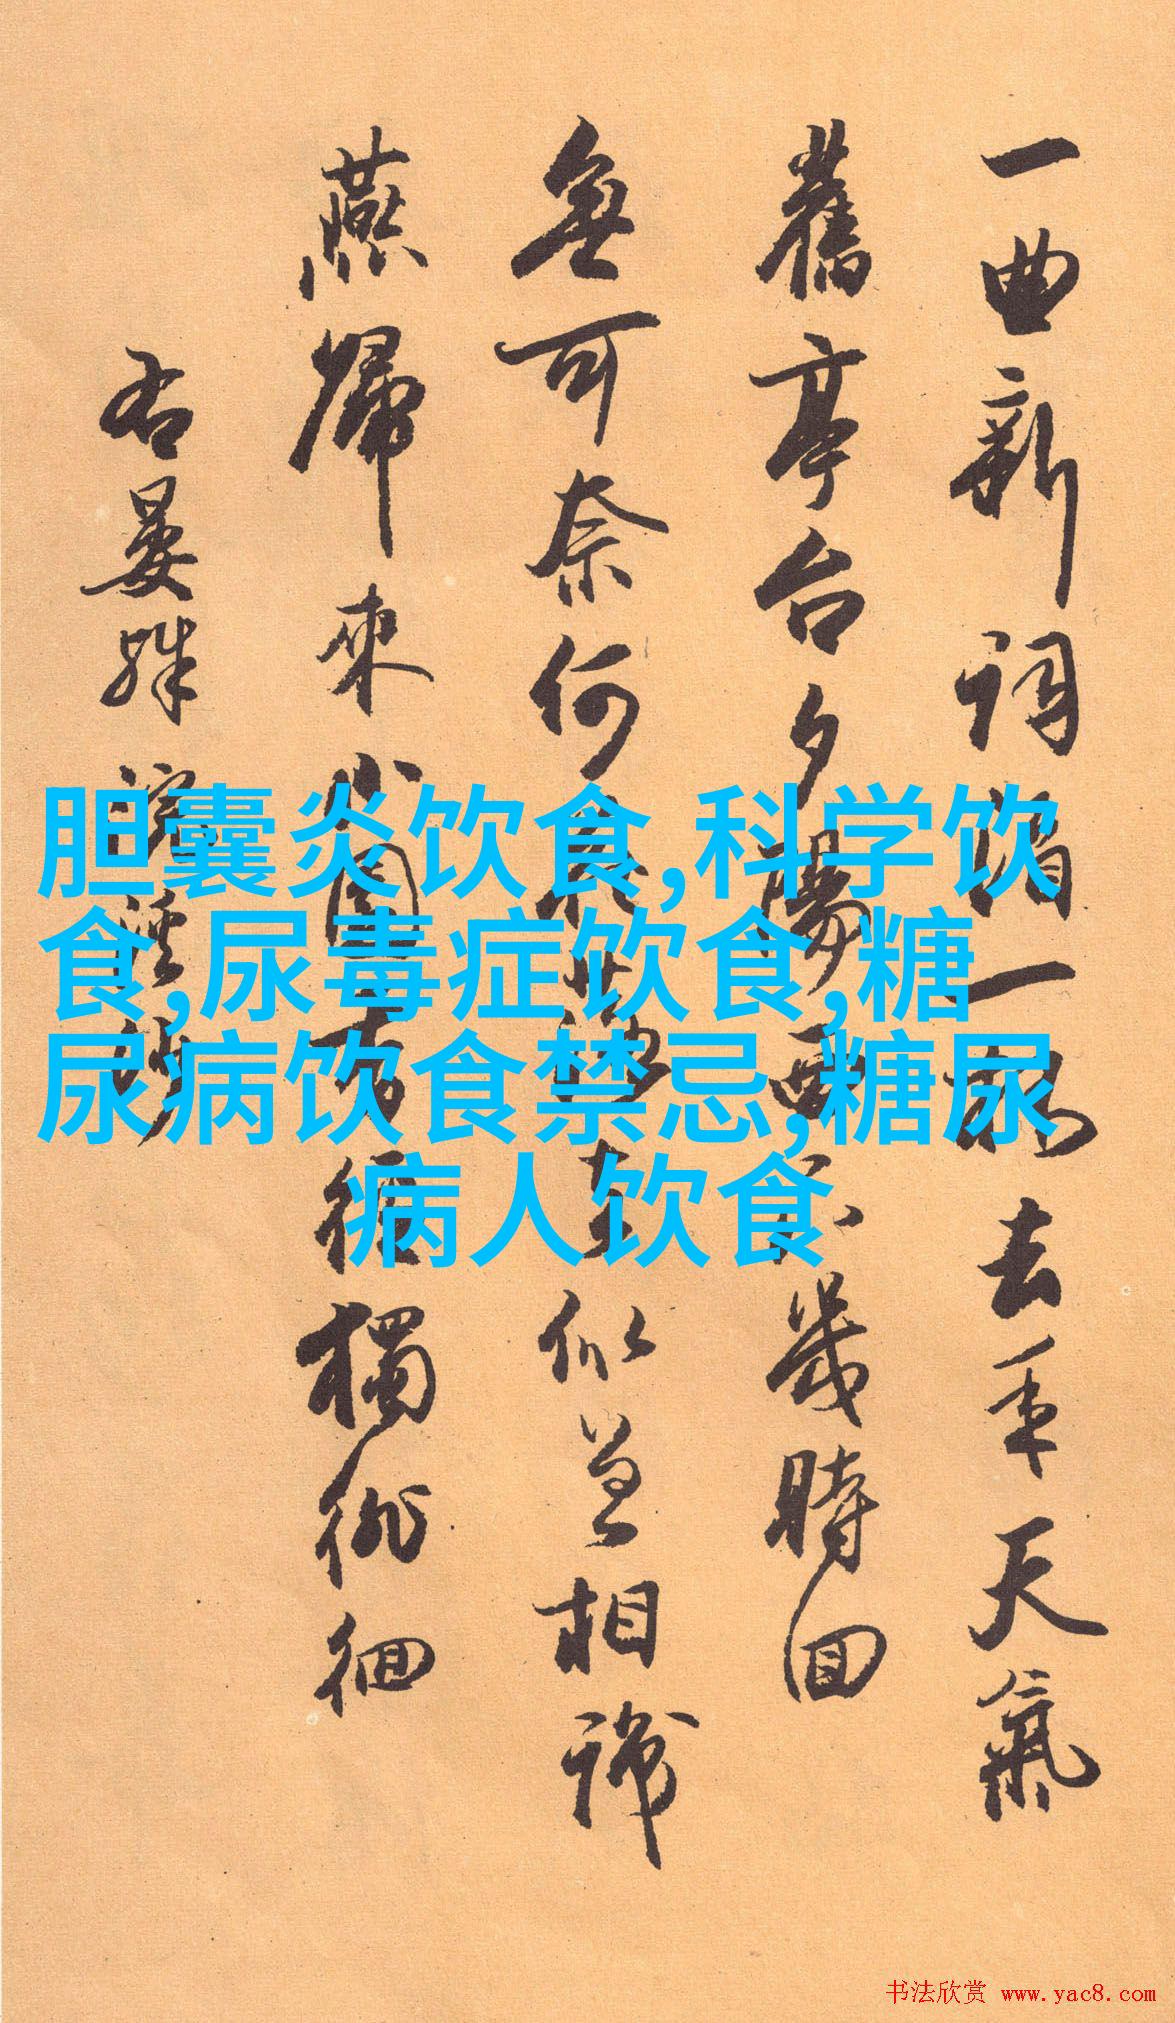 一曲新詞酒一杯去年天氣
舊亭台夕陽西下幾時回
無可奈何花落去似曾相識
燕歸來小園香徑獨徘徊
右晏殊浣溪沙
胆囊炎饮食,科学饮
食,尿毒症饮食,糖
尿病饮食禁忌,糖尿
病人饮食
书法欣赏 www.yac8.com